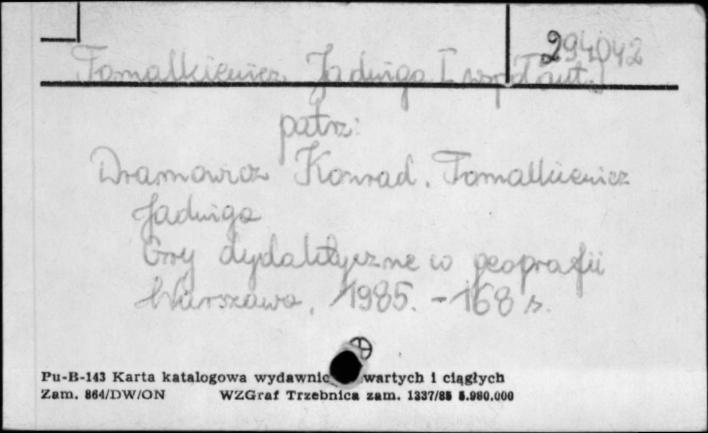 294042
Tomalkiewicz Jadwiga [współaut.]
patrz:
Dramowicz Konrad, Tomalkiewicz
Jadwiga
Gry dydaktyczne w geografii
Warszawa, 1985. - 168 s.
Pu-B-143 Karta katalogowa wydawnic wartych i ciągłych
Zam. 864/DW/ON WZGraf Trzebnica zam. 1337/85 5.980.000